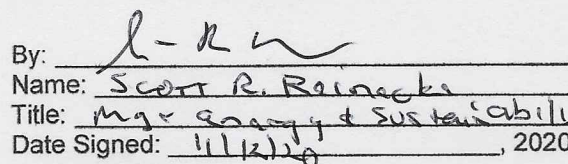 By:
Name: Scott R. Reinecke
Title: Mgr Energy & Sustainabili
Date Signed: 11/12/20, 2020